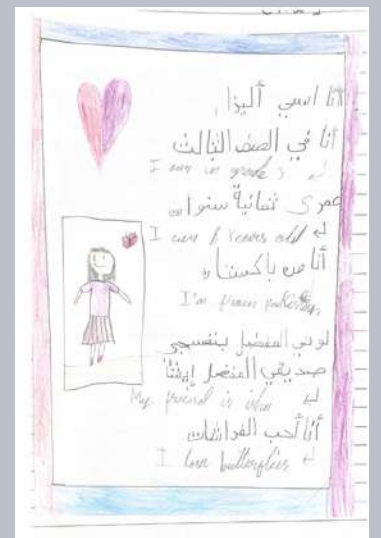 أنا اسمي أليزا
أنا في الصف الثالث
I am in grade 3
عمري ثمانية سنوات
I am 8 years old
أنا من باكستان
I'm from pakistan
لوني المفضل بنفسجي
صديقي المفضل إيشا
My friend is
أنا أحب الفراشات
I love butterflies